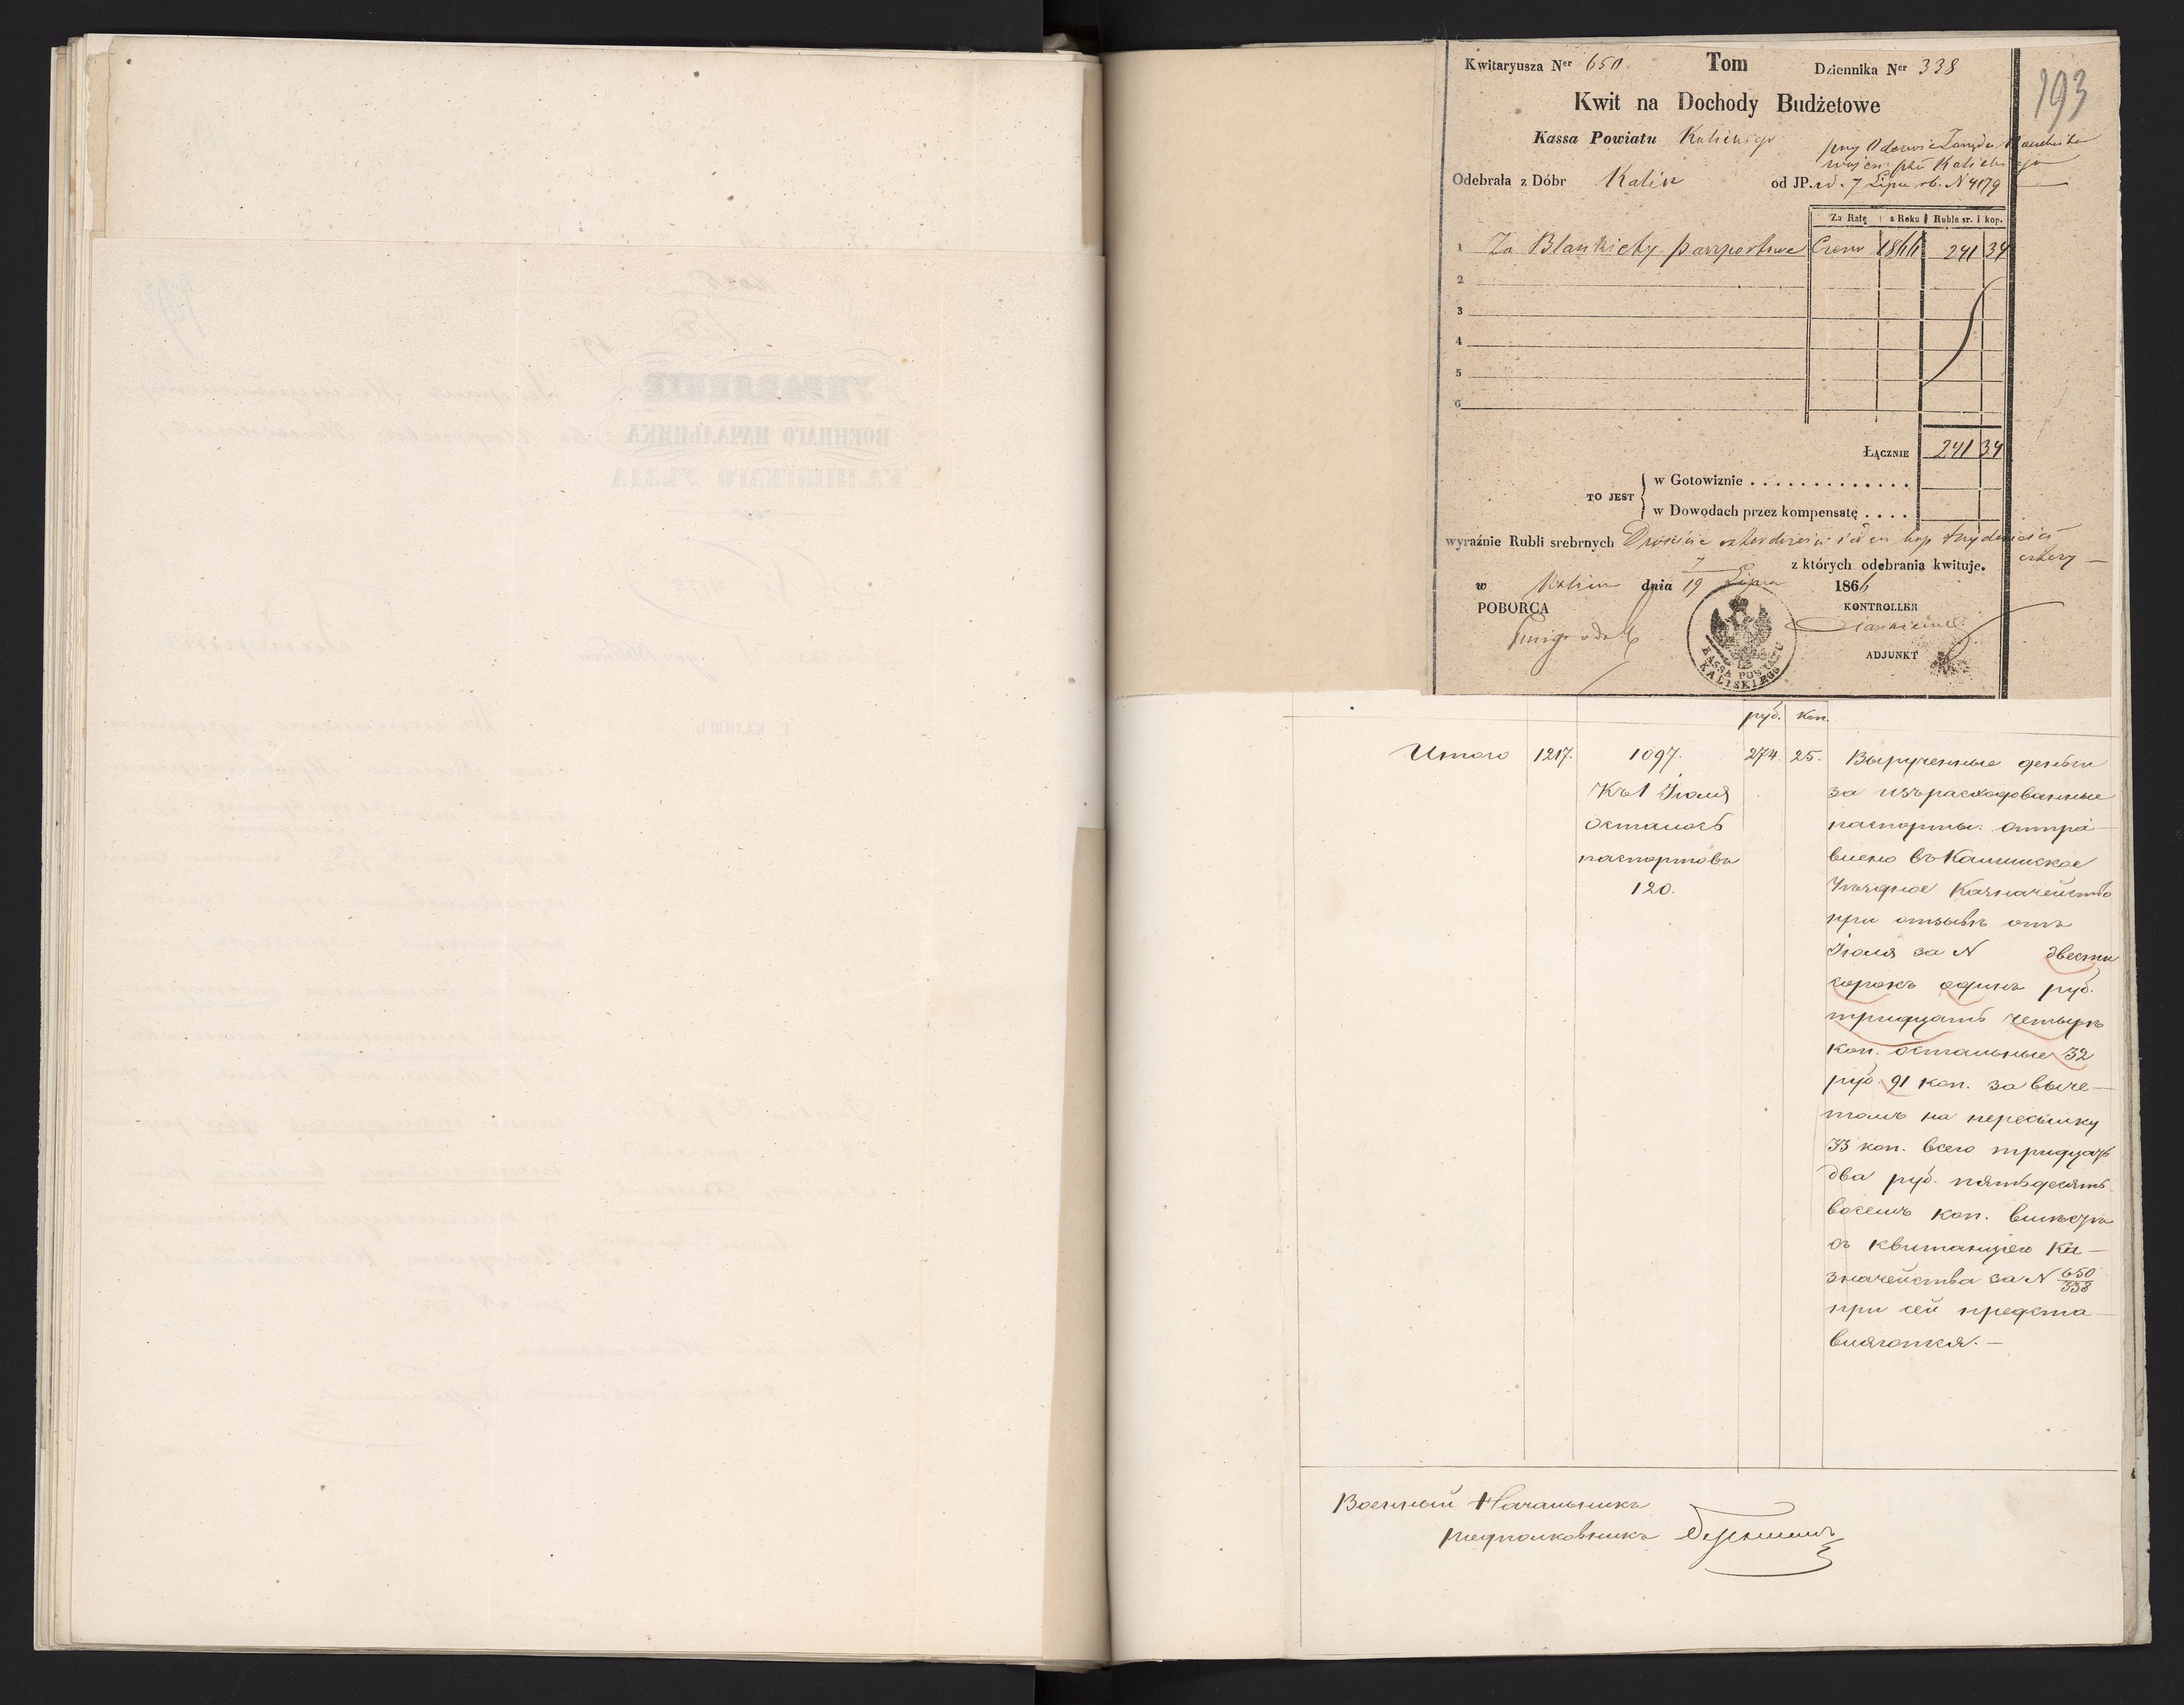 Kwitaryusza Ner 650. Tom Dziennika Ner 338
193
Kwit na Dochody Budżetowe
Kassa Powiatu Kaliskiego
przy Odezwie Zarządu Naczelnika
wojen: ptu Kaliskiego
Odebrała z Dóbr Kalisz od JP. z d. 7 Lipca rb. N 4179
Za Ratę z Roku Ruble sr. i kop.
1 Za Blankiety paszportowe Czerw 1866 241 34
2
3
4
5
6
ŁĄCZNIE 241 34
TO JEST
w Gotowiznie . . . . . . . . . . . . . .
w Dowodach przez kompensatę . . . .
wyraźnie Rubli srebrnych Dwieście czterdzieści jeden kop trzydzieści
cztery —
z których odebrania kwituje.
w Kaliszu dnia 7/19 Lipca 1866
POBORCA KONTROLLER
ADJUNKT
KASSA POWIATU
KALISKIEGO
руб. коп.
Итого 1217. 1097. 274. 25.
Къ 1 Іюля
осталось
паспортовъ
120.
Вырученные деньги
за израсходованные
паспорты: отпра-
влено въ Калишское
Уѣздное Казначейство
при отзывѣ отъ
Іюля за N двести
сорокъ одинъ руб.
тридцать четыре
коп. остальные 32
руб. 91 коп. за выче-
томъ на пересылку
33 коп. всего тридцать
два руб. пятьдесятъ
восемь коп. вмѣстѣ
съ квитанціею Ка-
значейства за N 650/338
при сей предста-
вляются. —
Военный Начальникъ
подполковникъ